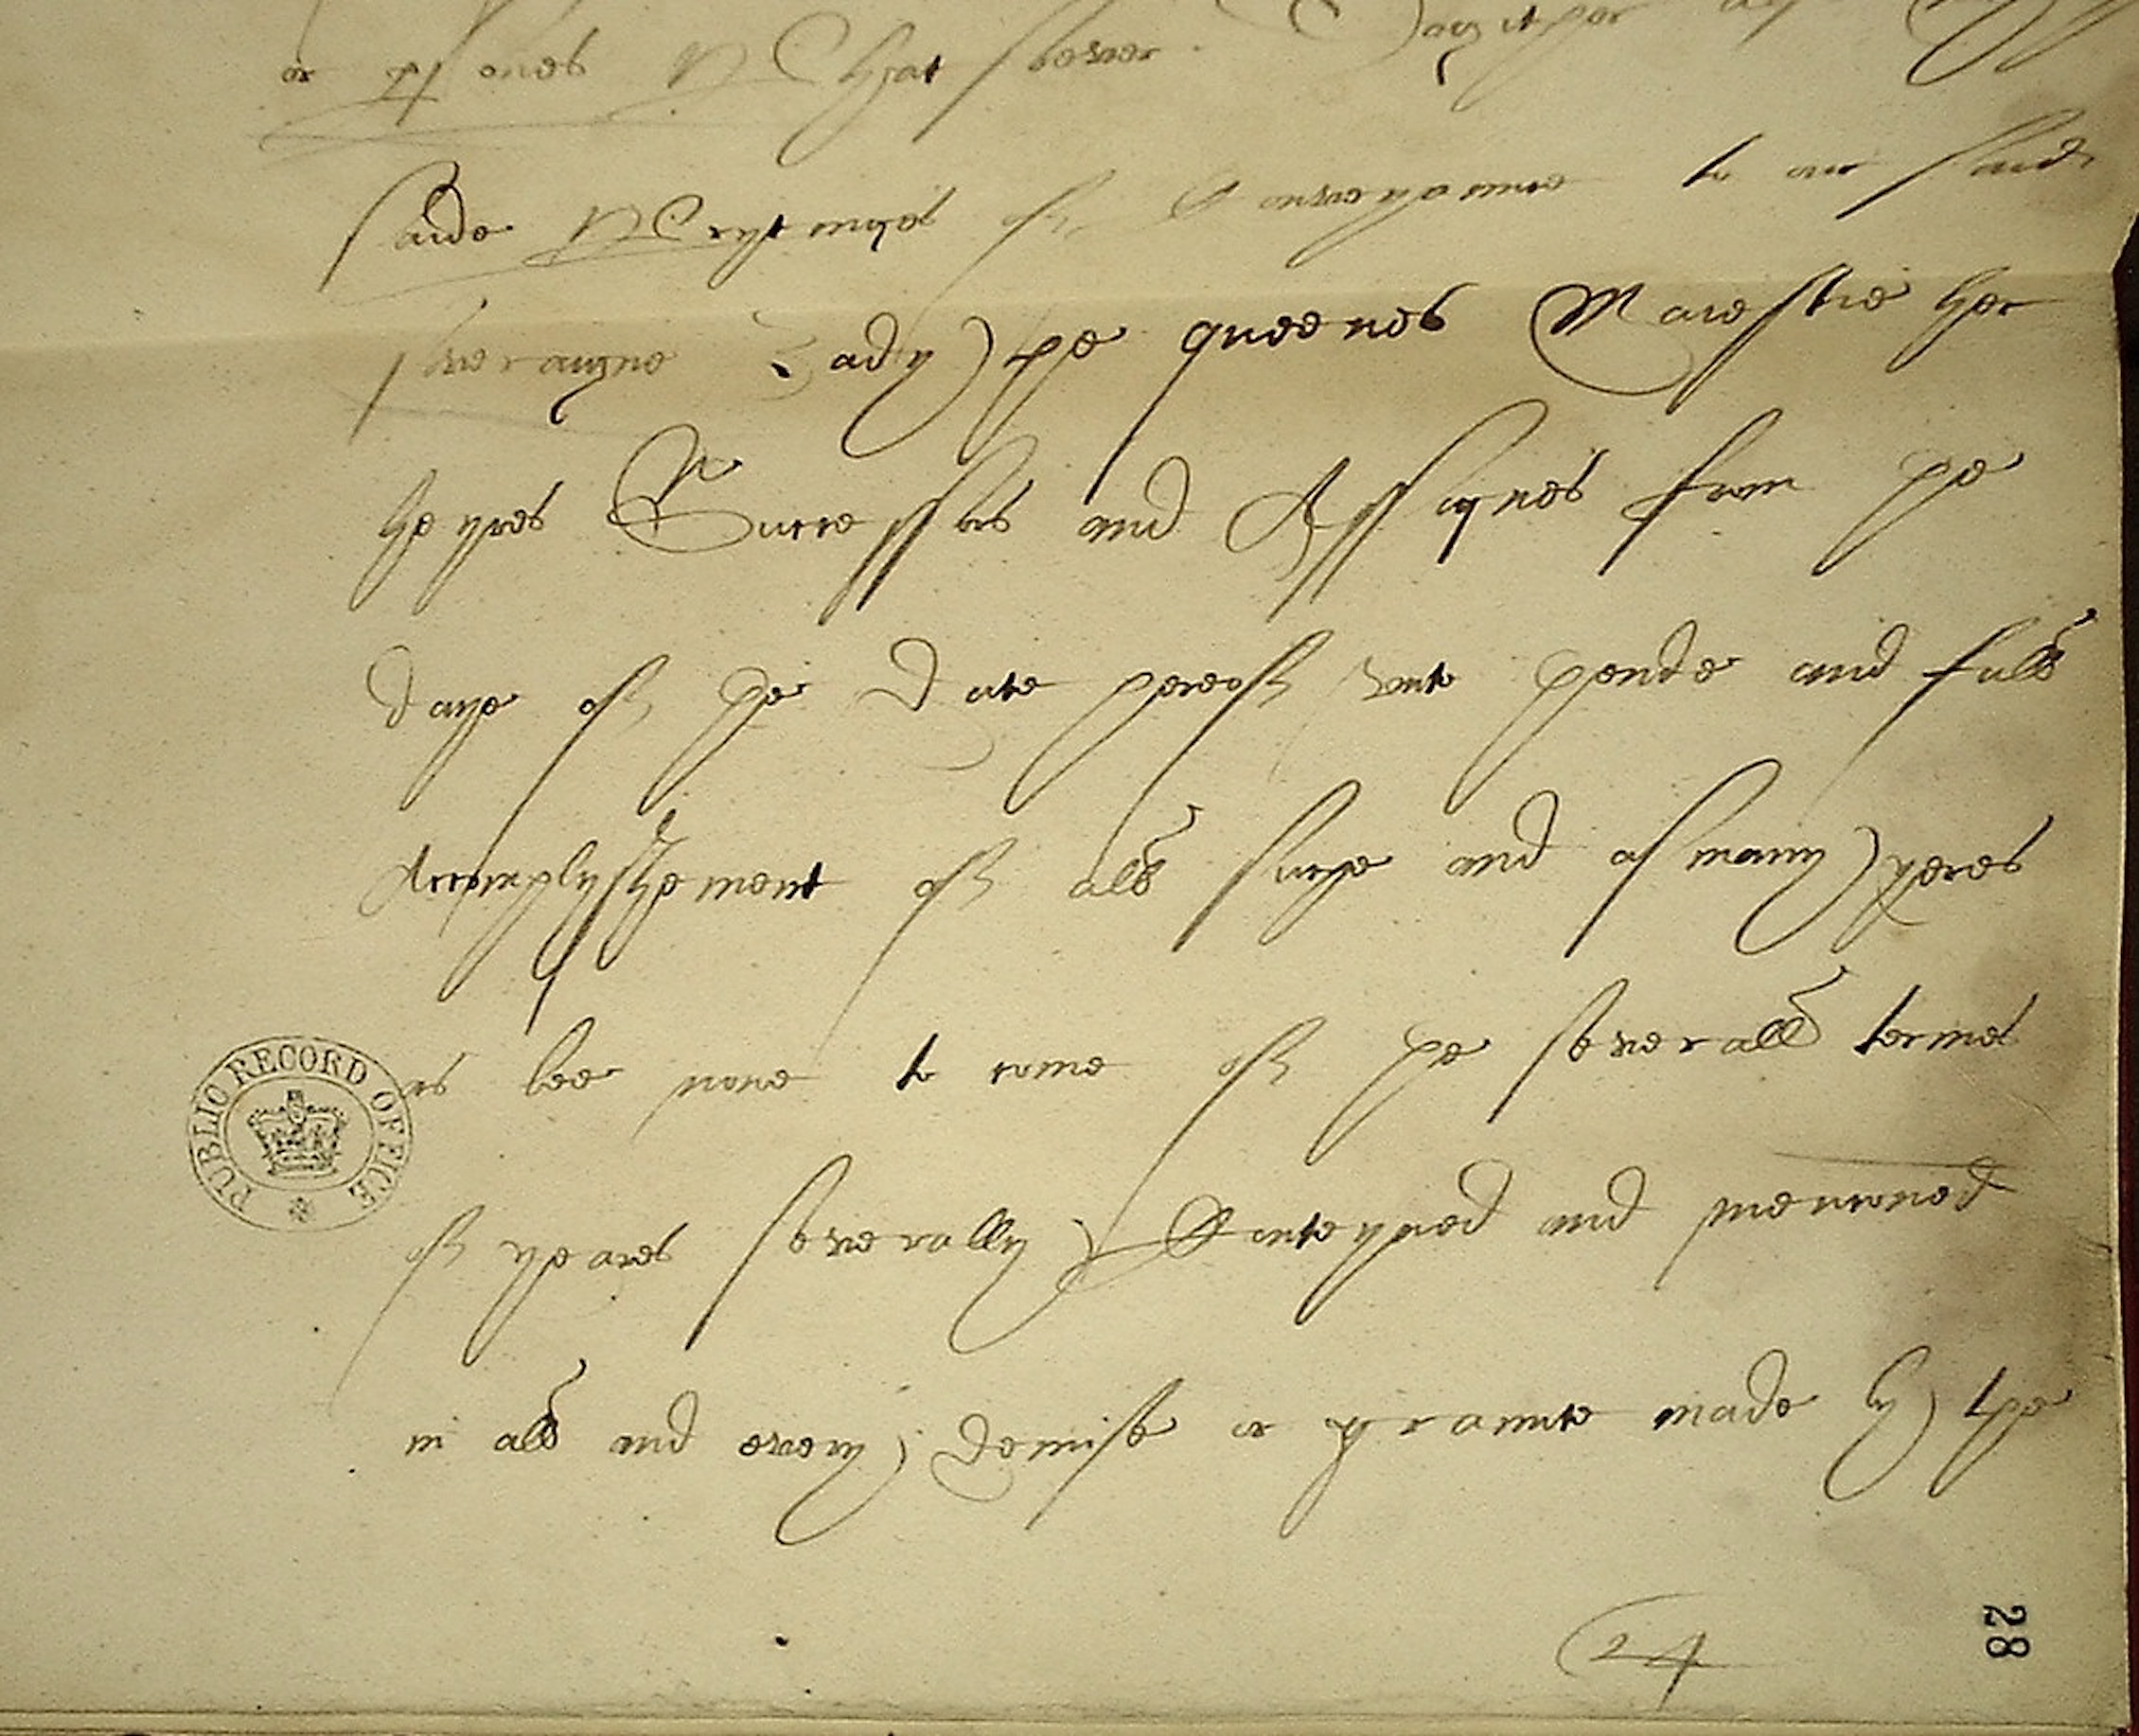 or psones Whatsoever
saide Wrytinge of Conveyaunce to our said
soveraigne Lady the queenes Maiestie her
heyres Successors and Assignes from the
daye of the Date hereof unto thende and full
Accomplyshement of all suche and as many yeres
as bee nowe to come of the severall termes
of yeares severally Conteyned and mencioned
in all and every demise or graunte made by the
PUBLIC RECORD OFFICE
24
28